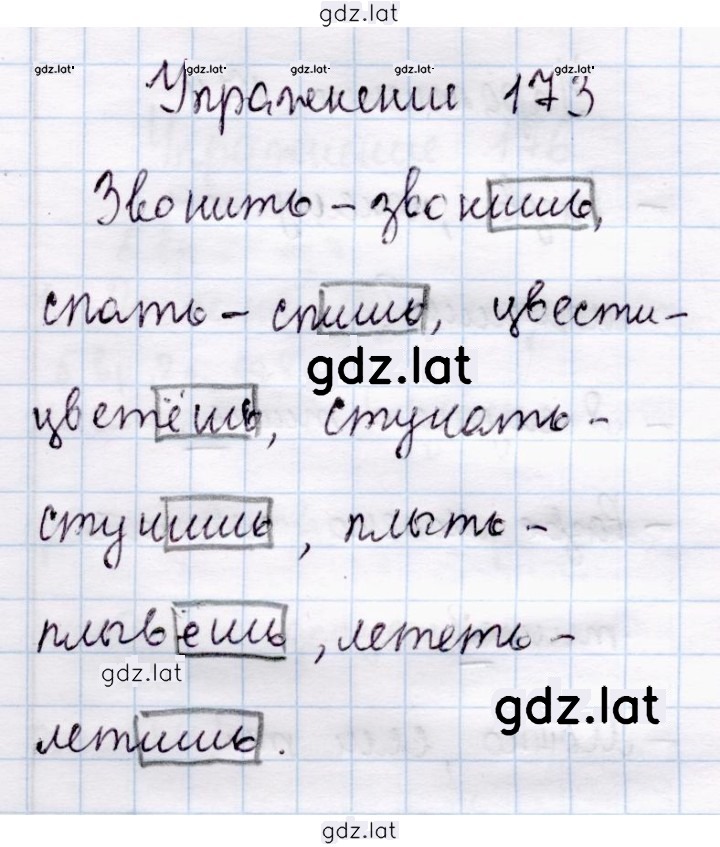 gdz.lat
gdz.lat gdz.lat gdz.lat gdz.lat gdz.lat
Упражнение 173
Звонить – звонишь,
спать – спишь, цвести –
gdz.lat
цветёшь, стучать –
стучишь, плыть –
плывёшь, лететь –
gdz.lat
gdz.lat
летишь.
gdz.lat